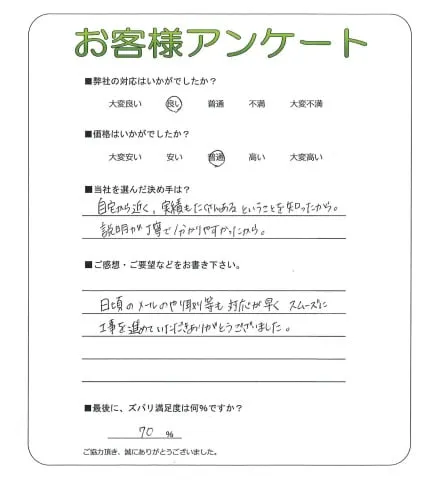 お客様アンケート
■弊社の対応はいかがでしたか?
大変良い 良い 普通 不満 大変不満
■価格はいかがでしたか?
大変安い 安い 普通 高い 大変高い
■当社を選んだ決め手は?
自宅から近く、実績もたくさんあるということを知ったから。
説明が丁寧で分かりやすかったから。
■ご感想・ご要望などをお書き下さい。
日頃のメールのやり取り等も対応が早くスムーズに
工事を進めていただきありがとうございました。
■最後に、ズバリ満足度は何%ですか?
90 %
ご協力頂き、誠にありがとうございました。